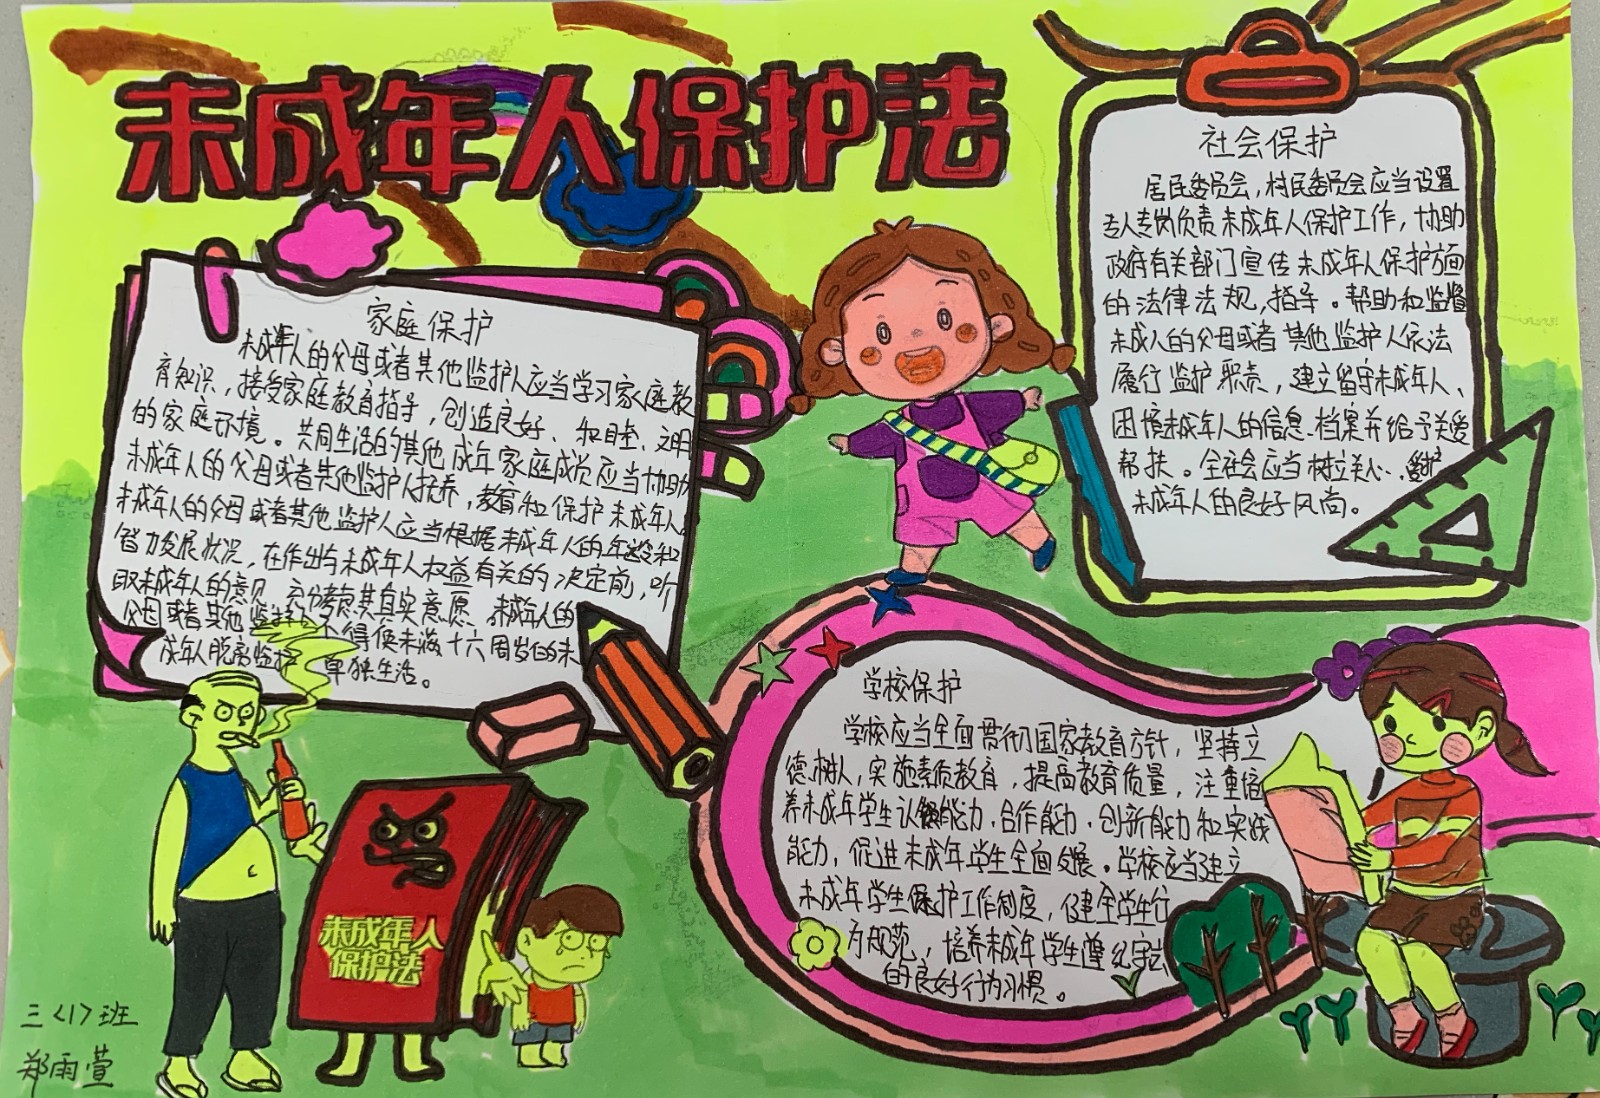 未成年人保护法
家庭保护
未成年人的父母或者其他监护人应当学习家庭教
育知识，接受家庭教育指导，创造良好、和睦、文明
的家庭环境。共同生活的其他成年家庭成员应当协助
未成年人的父母或者其他监护人抚养，教育和保护未成年人。
未成年人的父母或者其他监护人应当根据未成年人的年龄和
智力发展状况，在作出与未成年人权益有关的决定前，听
取未成年人的意见，充分考虑其真实意愿。未成年人的
父母或者其他监护 得使未满十六周岁的未
成年人脱离监护 单独生活。
社会保护
居民委员会，村民委员会应当设置
专人专岗负责未成年人保护工作，协助
政府有关部门宣传未成年人保护方面
的法律法规，指导。帮助和监督
未成人的父母或者其他监护人依法
履行监护职责，建立留守未成年人、
困境未成年人的信息、档案并给予关爱
帮扶。全社会应当树立关心、爱护
未成年人的良好风尚。
学校保护
学校应当全面贯彻国家教育方针，坚持立
德树人，实施素质教育，提高教育质量，注重培
养未成年学生认知能力，合作能力，创新能力和实践
能力，促进未成年学生全面发展。学校应当建立
未成年学生保护工作制度，健全学生行
为规范，培养未成年学生遵纪守法
的良好行为习惯。
未成年人
保护法
三〈1〉班
郑雨萱